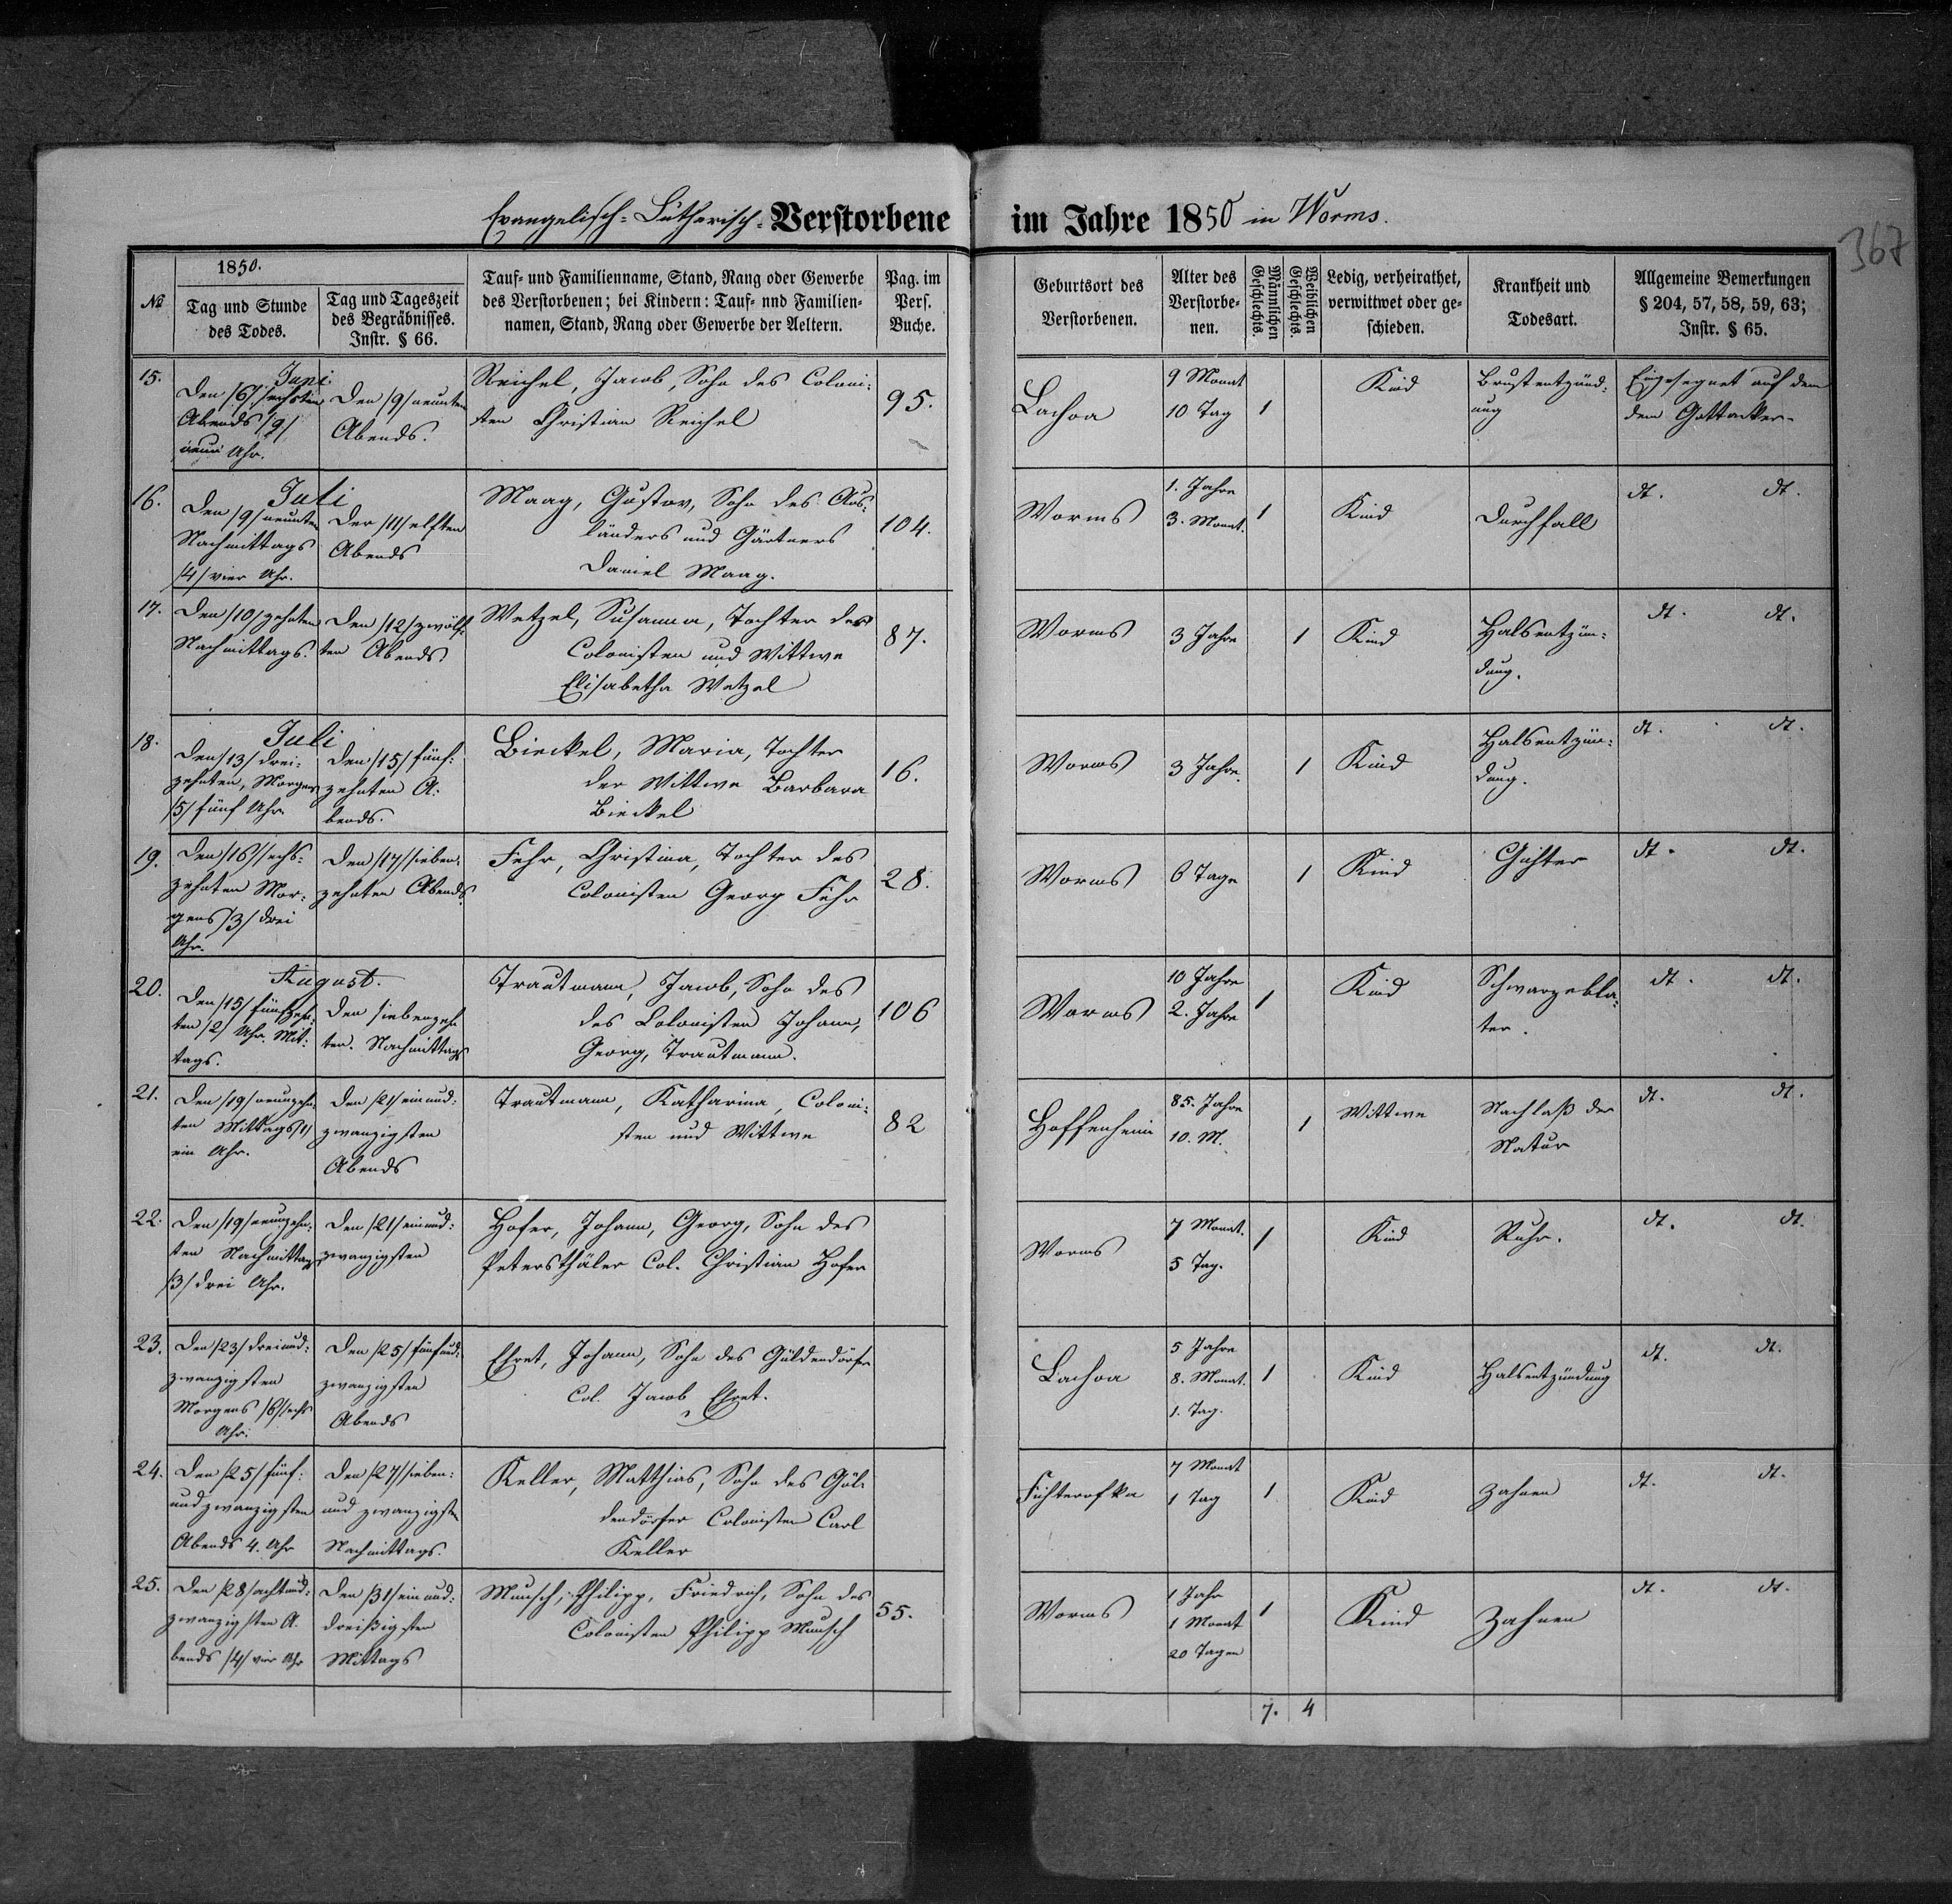 Evangelisch-Lutherisch- Verstorbene im Jahre 1850 in Worms.
367
1850.
№
Tag und Stunde
des Todes.
Tag und Tageszeit
des Begräbnisses.
Instr. § 66.
Tauf- und Familienname, Stand, Rang oder Gewerbe
des Verstorbenen; bei Kindern: Tauf- nnd Familien-
namen, Stand, Rang oder Gewerbe der Aeltern.
Pag. im
Pers.
Buche.
Geburtsort des
Verstorbenen.
Alter des
Verstorbe-
nen.
Männlichen
Geschlechts.
Weiblichen
Geschlechts.
Ledig, verheirathet,
verwittwet oder ge-
schieden.
Krankheit und
Todesart.
Allgemeine Bemerkungen
§ 204, 57, 58, 59, 63;
Instr. § 65.
15.
Juni
Den /6/ sechsten
Abends /9/
neun Uhr.
Den /9/ neunten
Abends.
Reichel, Jacob, Sohn des Coloni-
sten Christian Reichel
95.
Lachoa
9 Monat
10 Tag
1
Kind
Brustentzünd-
ung
Eingesegnet auf dem
dem Gottacker-
16.
Juli
Den /9/ neunten
Nachmittags
/4/ vier Uhr.
Den /11/ elften
Abends
Maag, Gustav, Sohn des Aus-
länders und Gärtners
Daniel Maag.
104.
Worms
1. Jahre
3. Monat.
1
Kind
Durchfall
dt. dt.
17.
Den /10/ zehnten
Nachmittags.
Den /12/ zwölf-
ten Abends
Wetzel, Susanna, Tochter des
Colonisten und Wittwe
Elisabetha Wetzel
87.
Worms
3 Jahre
1
Kind
Halsentzün-
dung.
dt. dt.
18.
Juli
Den /13/ drei-
zehnten, Morgens
/5/ fünf Uhr.
Den /15/ fünf-
zehnten A-
bends.
Bieckel, Maria, Tochter
der Wittwe Barbara
Bieckel
16.
Worms
3 Jahre.
1
Kind
Halsentzün-
dung.
dt. dt.
19.
Den /16/ sechs-
zehnten Mor-
gens /3/ drei
Uhr.
Den /17/ sieben-
zehnten Abends
Fehr, Christina, Tochter des
Colonisten Georg Fehr
28.
Worms
6 Tage
1
Kind
Gichter
dt. dt.
20.
August.
Den /15/ fünfzehn-
ten /2/ Uhr. Mit-
tags.
Den siebenzehn
ten. Nachmittags
Trautmann, Jacob, Sohn des
des Colonisten Johann,
Georg, Trautmann.
106
Worms
10 Jahre
2. Jahre
1
Kind
Schwarzebla-
ter.
dt. dt.
21.
Den /19/ neunzehn-
ten Mittags /1/
ein Uhr.
Den /21/ einund-
zwanzigsten
Abends
Trautmann, Katharina, Coloni-
sten und Wittwe
82
Hoffenheim
85. Jahre
10. M.
1
Wittwe
Nachlaß der
Natur
dt. dt.
22.
Den /19/ neunzehn-
ten Nachmittags
/3/ drei Uhr.
Den /21/ einund-
zwanzigsten
Hofer, Johann, Georg, Sohn des
Petersthäler Col. Christian Hofer
Worms
7 Monat.
5 Tag.
1
Kind
Ruhr.
dt. dt.
23.
Den /23/ dreiund-
zwanzigsten
Morgens /6/ sechs
Uhr.
Den /25/ fünfund-
zwanzigsten
Abends
Ehret, Johann, Sohn des Güldendörfer
Col. Jacob Ehret.
Lachoa
5 Jahre
8. Monat.
1. Tag.
1
Kind
Halsentzündung
dt. dt.
24.
Den /25/ fünf-
undzwanzigsten
Abends 4. Uhr
Den /27/ sieben-
undzwanzigsten
Nachmittags.
Keller, Matthias, Sohn des Gül-
dendörfer Colonisten Carl
Keller
7 Monat
1 Tag
1
Kind
Zahnen
dt. dt.
25.
Den /28/ achtund-
zwanzigsten A-
bends /4/ vier Uhr
Den /31/ einund-
dreißigsten
Mittags
Munsch, Philipp, Friedrich, Sohn des
Colonisten Philipp Munsch
55.
Worms
1 Jahr
1 Monat
20 Tagen
1
Kind
Zahnen
dt. dt.
7. 4